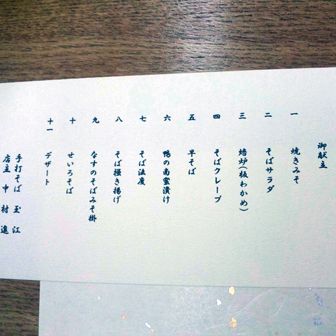 御献立
一 焼きみそ
二 そばサラダ
三 焙炉(板わかめ)
四 そばクレープ
五 早そば
六 鴨の南蛮漬け
七 そば法度
八 そば掻き揚げ
九 なすのそばみそ掛
十 せいろそば
十一 デザート
手打そば 玉江
店主 中村進